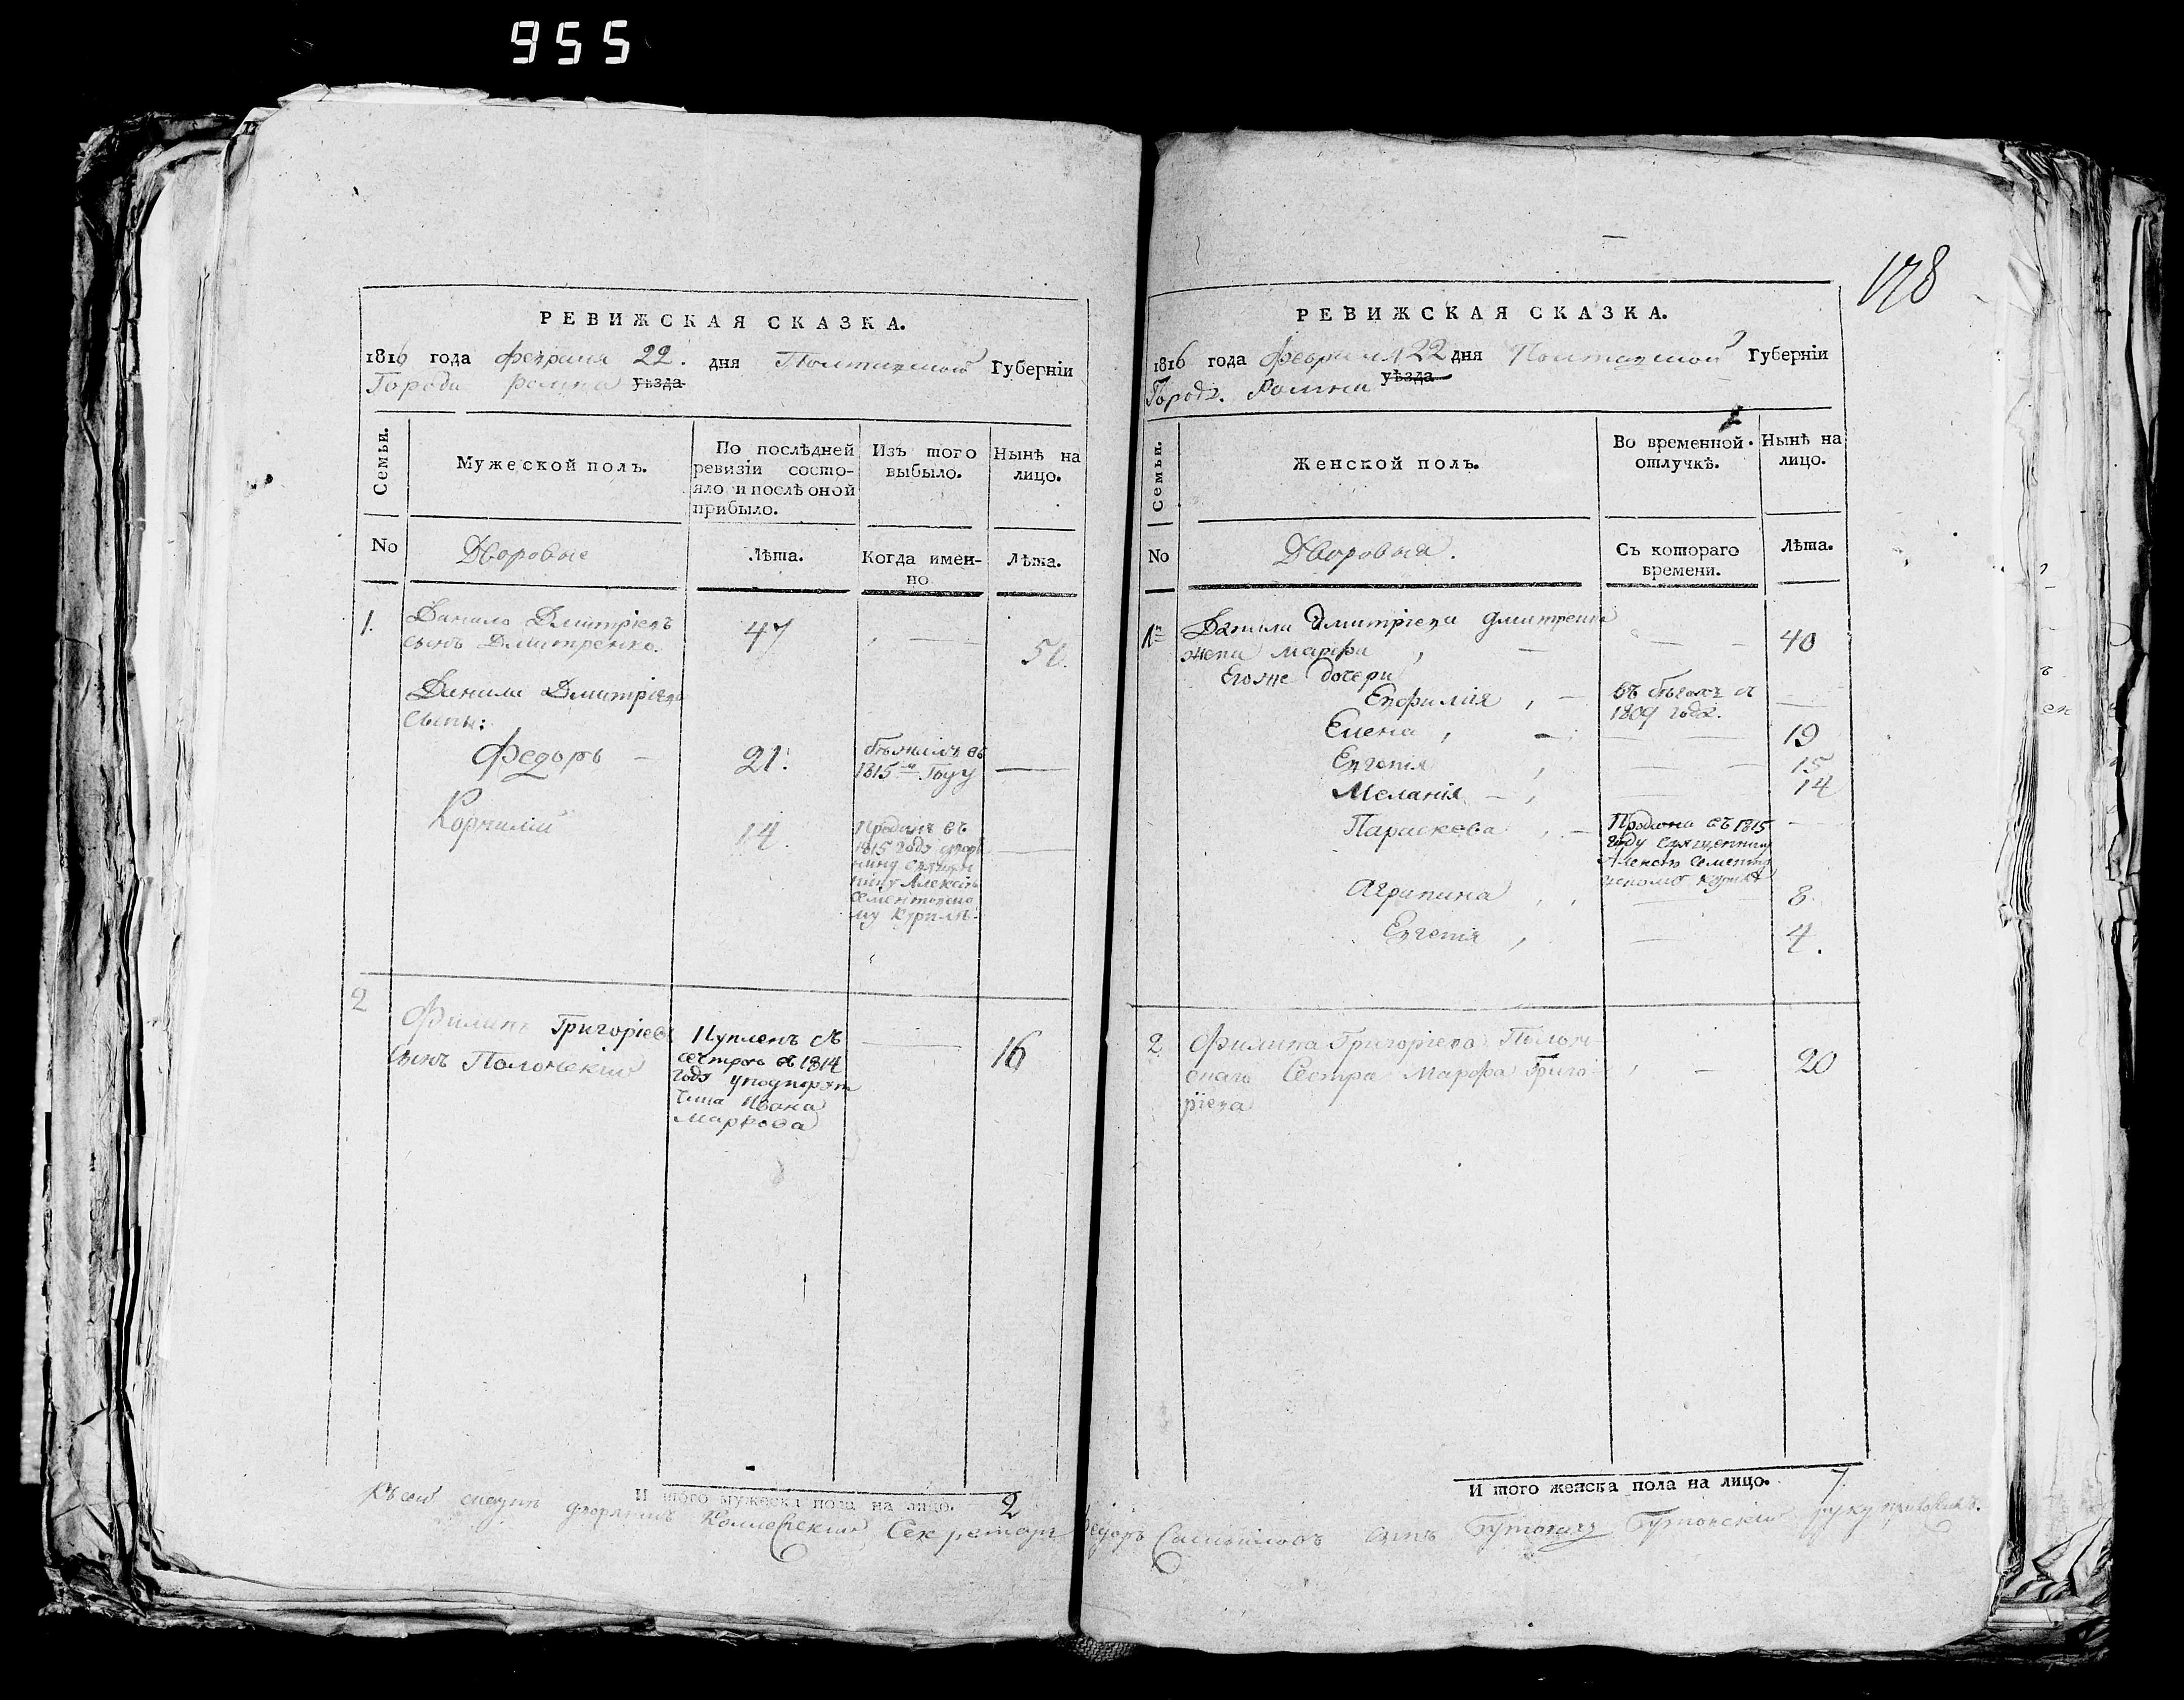 955
178
РЕВИЖСКАЯ СКАЗКА.
1816 года февраля 22. дня Полтавской Губернїи
Города Ромна уѣзда
Семьи.
Мужеской полъ.
По послѣдней ревизїи состояло и послѣ оной прибыло.
Изъ того выбыло.
Нынѣ на лицо.
No
Дворовые
Лѣта.
Когда имен-
но
Лѣта.
1.
Данило Дмитріевъ
сынъ Дмитренко.
47
—
50.
Данила Дмитріева
сыны:
Федоръ —
21.
бѣжалъ въ
1815м Году
—
Корнилій
14.
Проданъ въ
1815 году
Алексѣю
Курилѣ.
—
2
Филипъ Григоріевъ
сынъ Полонскій
Купленъ съ
сестрою въ 1814
году
Ивана
Маркова
—
16
И того мужеска пола на лицо. 2
РЕВИЖСКАЯ СКАЗКА.
1816 года февраля 22 дня Полтавской Губернїи
Городъ. Ромна уѣзда
Семьи.
Женской полъ.
Во временной отлучкѣ.
Нынѣ на лицо.
No
Дворовыя.
Съ котораго
времени.
Лѣта.
1я
Данила Дмитріева Дмитренка
жена Марфа
—
40
Его же дочери
Евфимія , —
въ бѣгахъ съ
1809 года.
—
Елена , —
19
Евгенія ,
15
Меланія — ,
14
Параскева , —
Продана въ 1815
году священнику
—
Агрипина , ,
8.
Евгенія ,
4.
2
Филипа Григоріева Полон-
скаго Сестра Марфа Григо-
ріева
—
20
И того женска пола на лицо. 7.
Къ сей сказкѣ дворянинъ Коллежскій Секретарь Федоръ Самойловъ сынъ Бутовичъ Бутовскій руку приложилъ.